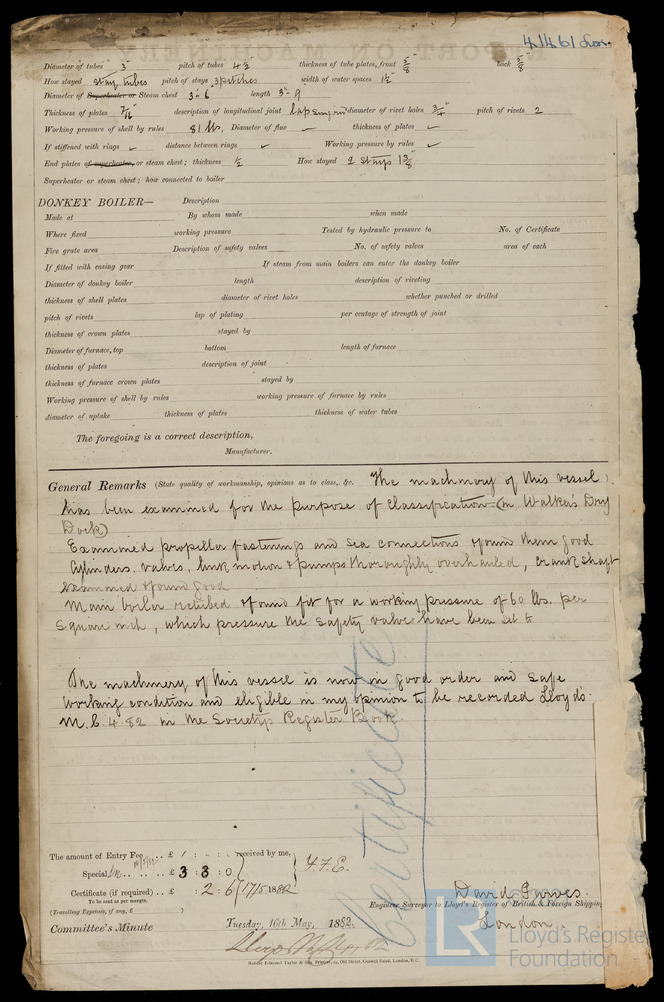 41461 Lon.
Diameter of tubes 3" pitch of tubes 4 1/2 thickness of tube plates, front 5/8" back 5/8"
How stayed stay tubes pitch of stays 3 pitches width of water spaces 1 1/2"
Diameter of Superheater or Steam chest 3'.6" length 3'.9
Thickness of plates 7/16" description of longitudinal joint lap diameter of rivet holes 3/4" pitch of rivets 2
Working pressure of shell by rules 81 lbs. Diameter of flue thickness of plates
If stiffened with rings distance between rings Working pressure by rules
End plates of superheater, or steam chest; thickness 1/2 How stayed 2 stays 1 3/8"
Superheater or steam chest; how connected to boiler
DONKEY BOILER— Description
Made at By whom made when made
Where fixed working pressure Tested by hydraulic pressure to No. of Certificate
Fire grate area Description of safety valves No. of safety valves area of each
If fitted with easing gear If steam from main boilers can enter the donkey boiler
Diameter of donkey boiler length description of riveting
thickness of shell plates diameter of rivet holes whether punched or drilled
pitch of rivets lap of plating per centage of strength of joint
thickness of crown plates stayed by
Diameter of furnace, top bottom length of furnace
thickness of plates description of joint
thickness of furnace crown plates stayed by
Working pressure of shell by rules working pressure of furnace by rules
diameter of uptake thickness of plates thickness of water tubes
The foregoing is a correct description,
Manufacturer.
General Remarks (State quality of workmanship, opinions as to class, &c. The machinery of this vessel
has been examined for the purpose of classification (in Walker's Dry
Dock)
Examined propeller fastenings and sea connections & found them good
Cylinders, valves, link motion & pumps thoroughly overhauled, crank shaft
examined & found good
Main boiler retubed & found fit for a working pressure of 60 lbs. per
square inch, which pressure the safety valves have been set to
The machinery of this vessel is now in good order and safe
working condition and eligible in my opinion to be recorded Lloyd's
M.C. 4.82 in the Society's Register Book
Certificate
The amount of Entry Fee .. £ : : received by me,
Special .. £ 3 3 0
Certificate (if required) .. £ : 2 : 6 17/5 1882
To be sent as per margin.
(Travelling Expenses, if any, £ )
David Purves.
Engineer Surveyor to Lloyd's Register of British & Foreign Shipping
London.
Committee's Minute Tuesday, 16th May, 1882.
Lloyd's Register
Foundation